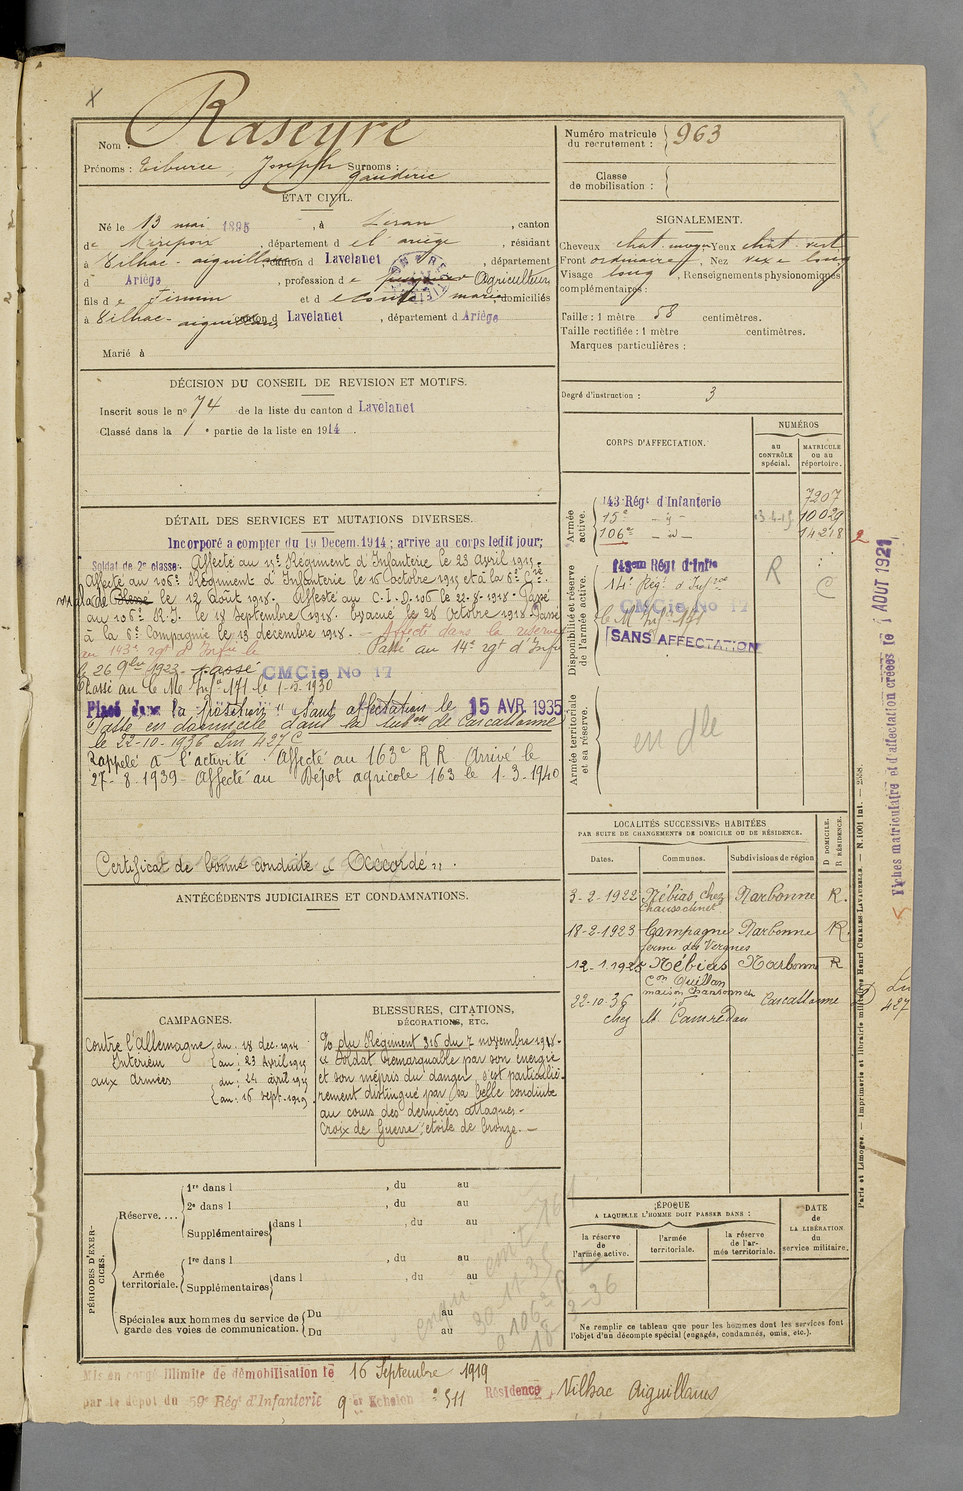 Raseyre
Nom :
Prénoms : Tiburce, Joseph Surnoms :
Gaudéric
ÉTAT CIVIL.
Né le 13 mai 1895, à Léran, canton
de Mirepoix, département de l'ariège, résidant
à Vilhac-aiguillans, canton d Lavelanet, département
d Ariège, profession de Agriculteur
fils de Firmin et d marie domiciliés
à Vilhac-aiguillans, canton d Lavelanet, département d Ariège
Marié à
DÉCISION DU CONSEIL DE REVISION ET MOTIFS.
Inscrit sous le nº 74 de la liste du canton d Lavelanet
Classé dans la 1e partie de la liste en 1914.
DÉTAIL DES SERVICES ET MUTATIONS DIVERSES.
Incorporé à compter du 19 Décem. 1914; arrivé au corps ledit jour;
Soldat de 2e classe. Affecté au 15e Régiment d'Infanterie le 23 avril 1915.
Affecté au 106e Régiment d'Infanterie le 16 Octobre 1915 et à la 6e Cie.
Malade le 12 Août 1918. Affecté au C.I.D. 106 le 22-8-1918. Passé
au 106e R.I. le 18 Septembre 1918. Evacué le 28 Octobre 1918. Passé
à la 6e Compagnie le 13 décembre 1918. - Affecté dans la réserve
au 143e rgt d'Infrie le Passé au 14e rgt d'Infie
le 26 9bre 1923. passé CMGie No 17
Classé au C M Infie 171 le 1-5-1930
Placé dans la position "Sans affectation le 15 AVR 1935
Passé en domicile dans la subon de Carcassonne
le 22-10-1936 Lin 427 C
Rappelé à l'activité. Affecté au 163e RR Arrivé le
27-8-1939- Affecté au Dépot agricole 163 le 1-3-1940
Certificat de bonne conduite "Accordé".
ANTÉCÉDENTS JUDICIAIRES ET CONDAMNATIONS.
CAMPAGNES.
Contre l'Allemagne, du: 18 dec. 1914
Intérieur au: 23 Avril 1915
aux armées du: 24 avril 1915
au: 16 sept. 1919
BLESSURES, CITATIONS,
DÉCORATIONS, ETC.
du Régiment 316 du 7 novembre 1918.
"Soldat remarquable par son énergie
et son mépris du danger, s'est particuliè-
rement distingué par sa belle conduite
au cours des dernières attaques.
Croix de Guerre; étoile de bronze. -
PÉRIODES D'EXERCICES.
Réserve....
1re dans l , du au
2e dans l , du au
Supplémentaires dans l , du au
Armée territoriale.
1re dans l , du au
Supplémentaires dans l , du au
Spéciales aux hommes du service de garde des voies de communication.
Du au
Du au
30-11-35
Numéro matricule du recrutement : 963
Classe de mobilisation :
SIGNALEMENT.
Cheveux chat. moyen Yeux chat. vert
Front ordinaire, Nez vexe long
Visage long, Renseignements physionomiques
complémentaires :
Taille : 1 mètre 58 centimètres.
Taille rectifiée : 1 mètre centimètres.
Marques particulières :
Degré d'instruction : 3
CORPS D'AFFECTATION.
NUMÉROS
au CONTRÔLE spécial.
MATRICULE ou au répertoire.
Armée active.
143 Régt d'Infanterie 7207
15e - d - 10029
106e - d - 14218
2
Disponibilité et réserve de l'armée active.
143em Régt d'Infie R
14e Rég. d'Infrie C
CMGie No 17
C M Infie 171
SANS AFFECTATION
Armée territoriale et sa réserve.
en dle
LOCALITÉS SUCCESSIVES HABITÉES
PAR SUITE DE CHANGEMENTS DE DOMICILE OU DE RÉSIDENCE.
Dates. Communes. Subdivisions de région D DOMICILE. R RÉSIDENCE.
3-2-1922 Nébias chez Narbonne R.
18-2-1923 Campagne Narbonne R.
ferme des Vergnes
12-1-1925 Nébias Narbonne R
Con Quillan
22-10-36 id Carcassonne D Lin 427
chez M. Camredon
ÉPOQUE
A LAQUELLE L'HOMME DOIT PASSER DANS :
la réserve de l'armée active.
l'armée territoriale.
la réserve de l'armée territoriale.
DATE de LA LIBÉRATION du service militaire.
Ne remplir ce tableau que pour les hommes dont les services font
l'objet d'un décompte spécial (engagés, condamnés, omis, etc.).
Fiches matriculaire et d'affectation créées le 1 AOUT 1921
Paris et Limoges. — Imprimerie et librairie militaires Henri CHARLES-LAVAUZELLE. — N. 1001 int. — 2558.
Mis en congé illimité de démobilisation le 16 Septembre 1919
par le dépôt du 59e Régt d'Infanterie 9 er Echelon nº 511 Résidence Vilhac Aiguillans